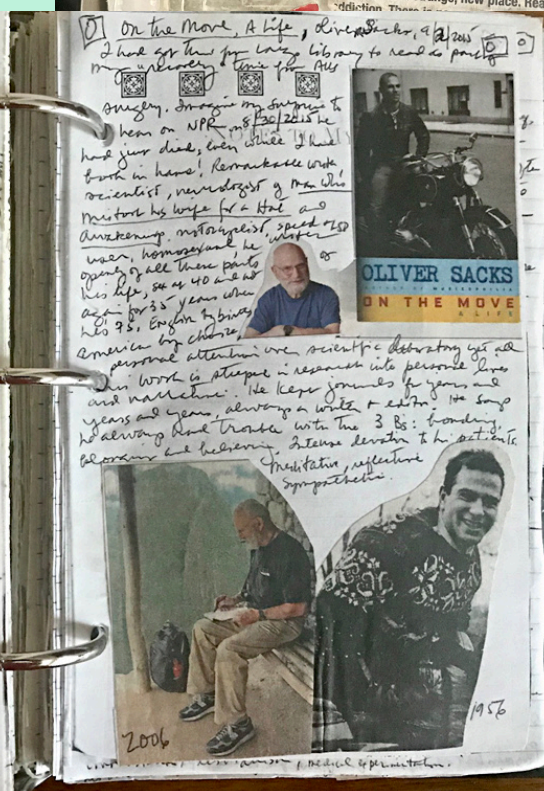 On the Move, A Life, Oliver Sacks, 9/2/2015
I had got this for Library to read as part
my recovery time from
surgery. Imagine my surprise to
hear on NPR on 8/30/2015 he
had just died, even while I had
book in hand! Remarkable
scientist, neurologist of Man who
mistook his wife for a Hat and
Awakenings. motorcyclist, speed
user, homosexual he writes
openly of all these parts of
his life, sex at 40 and not
again for 35 years when
he's 75. English by birth,
America by choice,
personal attention over scientific laboratory yet all
his work is steeped in research into personal lives
and narrative. He kept journals for years and
years and years, always a writer + editor. He says
he always had trouble with the 3 Bs: bonding,
belonging and believing. Intense devotion to his patients.
meditative, reflective
sympathetic.
OLIVER SACKS
ON THE MOVE
A LIFE
2006
1956
medical experimentation.
new place. Rea
ddiction. There is